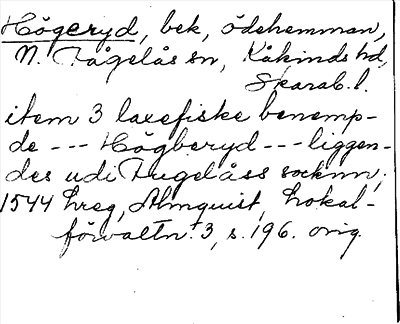 Högeryd, bek, ödehemman,
N. Fågelås sn, Kåkinds hd,
Skarab. l.
item 3 laxefiske benemp-
de --- Högberyd --- liggen-
des udi Fugelåss socknn;
1544 hreg, Almquist, Lokal-
förvaltn. 3, s. 196. orig.